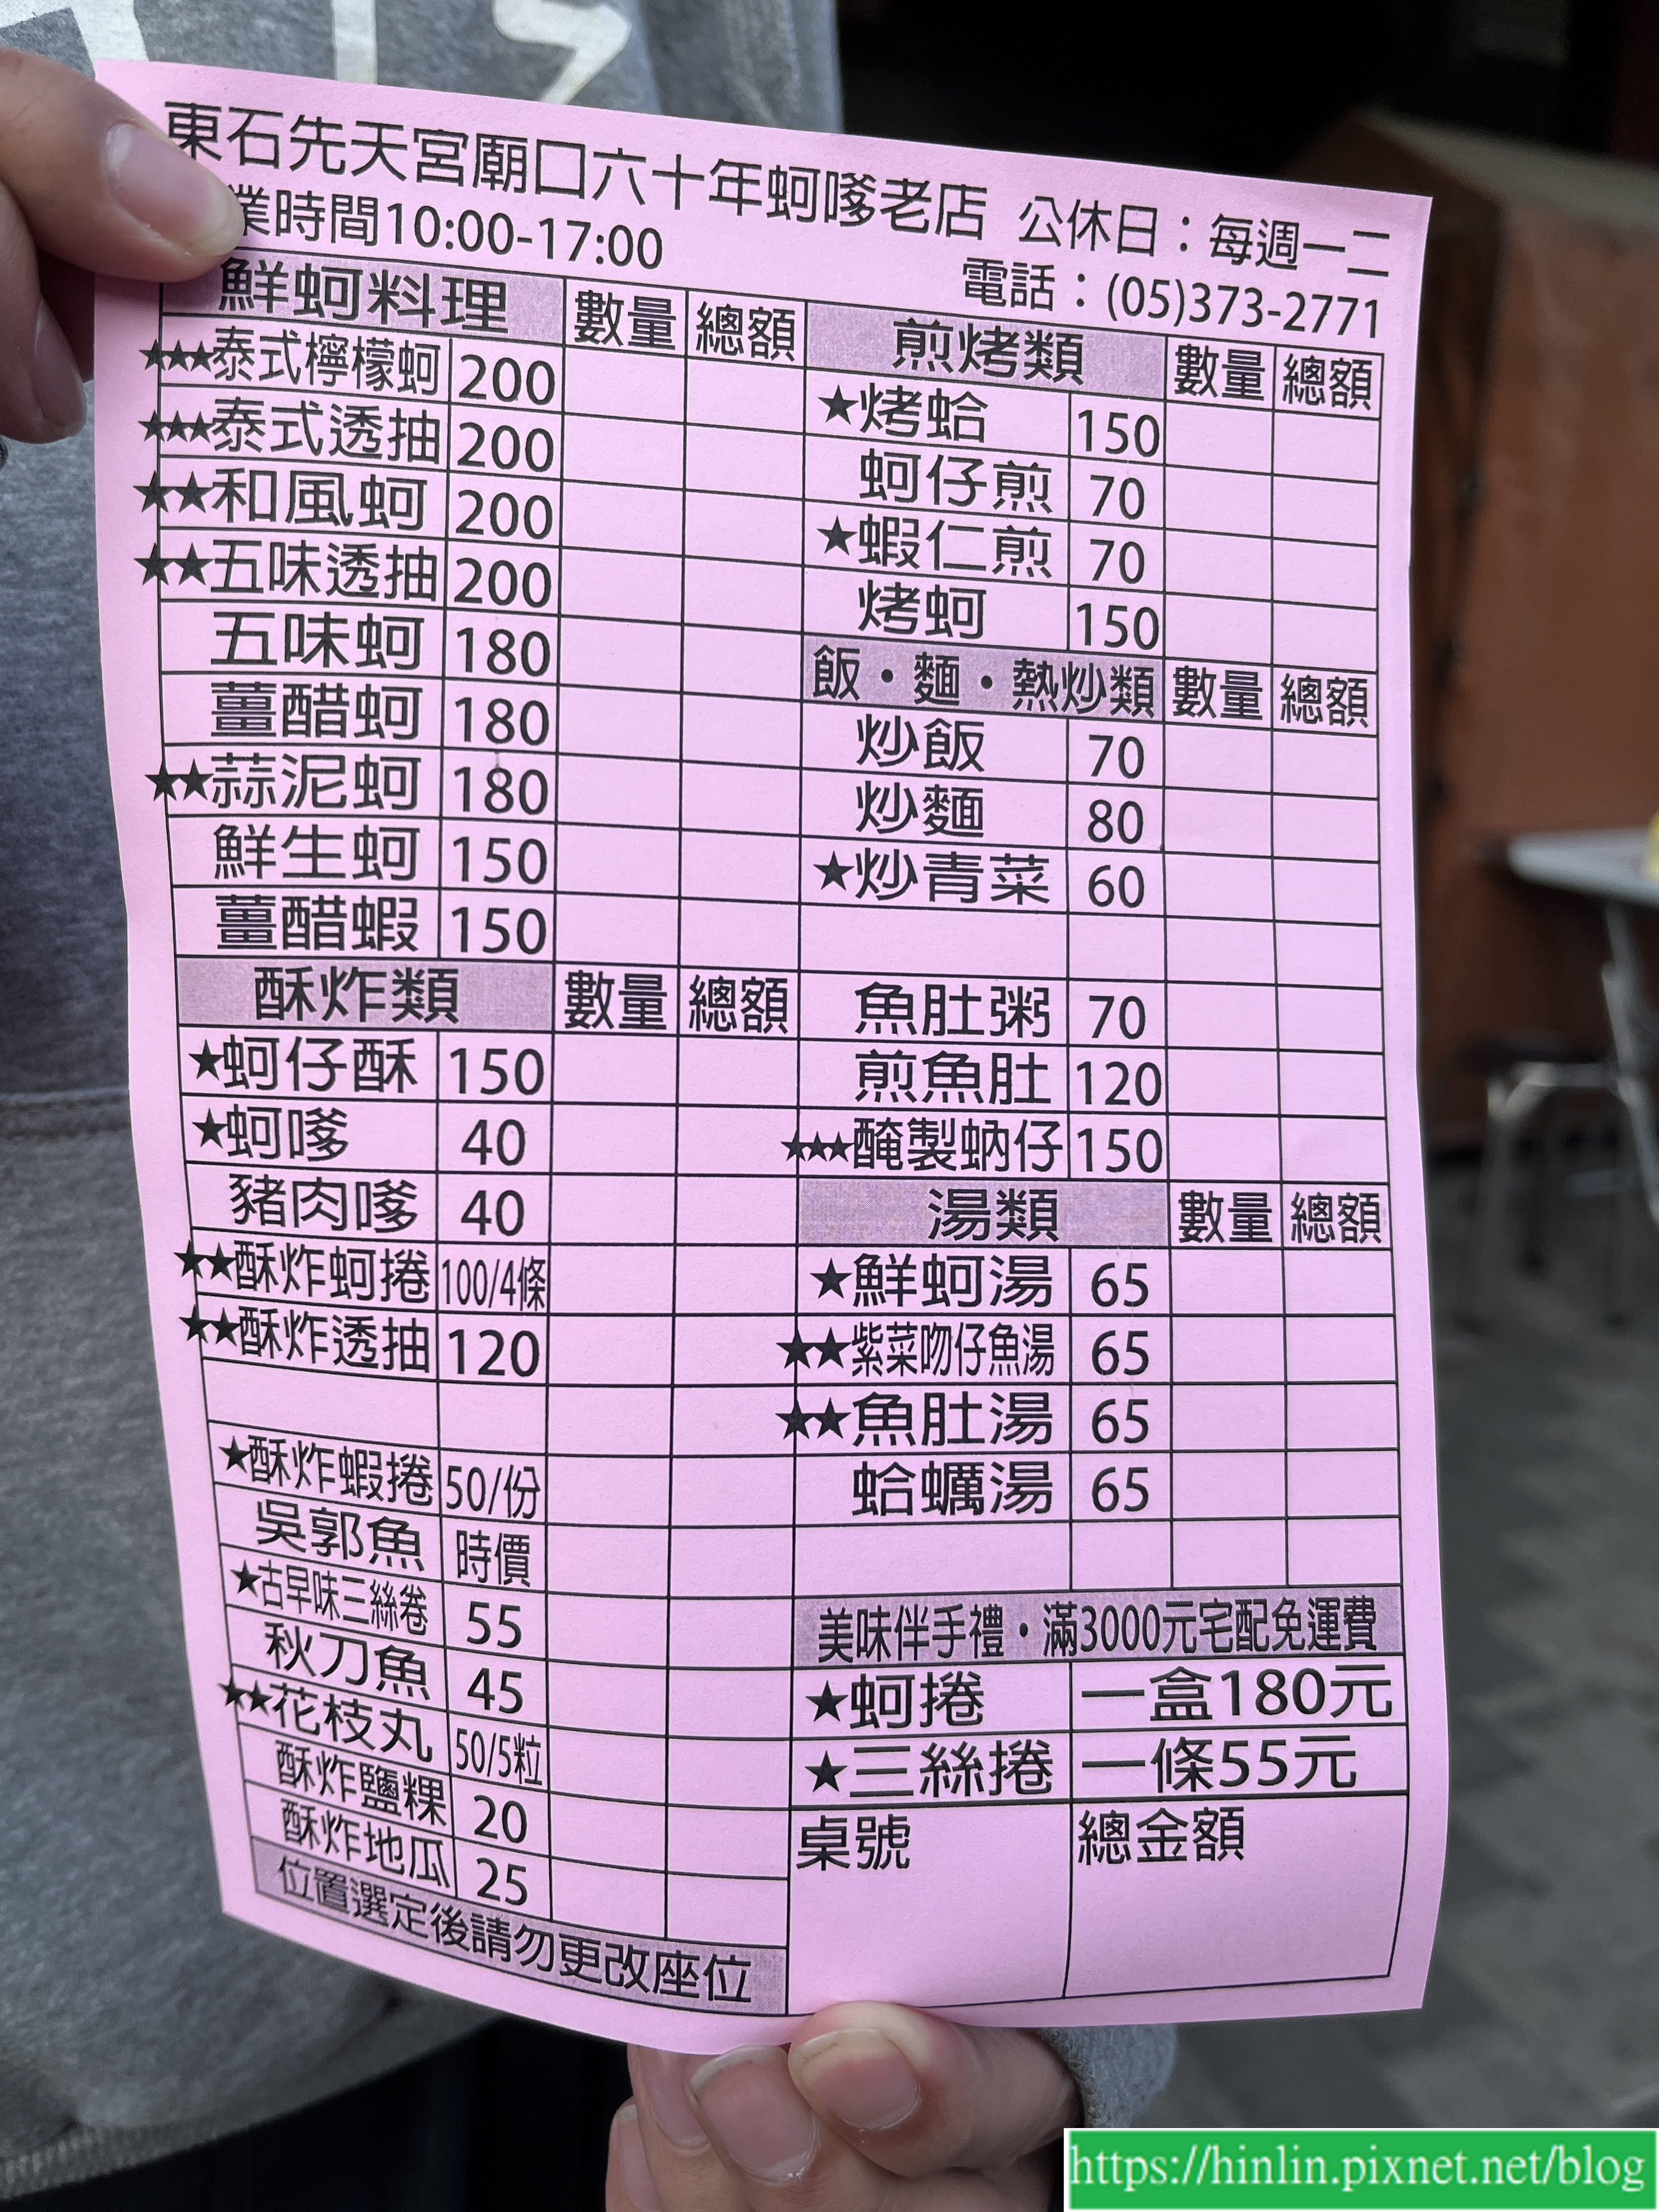 東石先天宮廟口六十年蚵嗲老店 公休日：每週一二
業時間10:00-17:00 電話：(05)373-2771
鮮蚵料理 數量 總額
★★★泰式檸檬蚵 200
★★★泰式透抽 200
★★和風蚵 200
★★五味透抽 200
五味蚵 180
薑醋蚵 180
★★蒜泥蚵 180
鮮生蚵 150
薑醋蝦 150
酥炸類 數量 總額
★蚵仔酥 150
★蚵嗲 40
豬肉嗲 40
★★酥炸蚵捲 100/4條
★★酥炸透抽 120
★酥炸蝦捲 50/份
吳郭魚 時價
★古早味三絲卷 55
秋刀魚 45
★★花枝丸 50/5粒
酥炸鹽粿 20
酥炸地瓜 25
位置選定後請勿更改座位
煎烤類 數量 總額
★烤蛤 150
蚵仔煎 70
★蝦仁煎 70
烤蚵 150
飯·麵·熱炒類 數量 總額
炒飯 70
炒麵 80
★炒青菜 60
魚肚粥 70
煎魚肚 120
★★★醃製蚋仔 150
湯類 數量 總額
★鮮蚵湯 65
★★紫菜吻仔魚湯 65
★★魚肚湯 65
蛤蠣湯 65
美味伴手禮·滿3000元宅配免運費
★蚵捲 一盒180元
★三絲捲 一條55元
桌號 總金額
https://hinlin.pixnet.net/blog